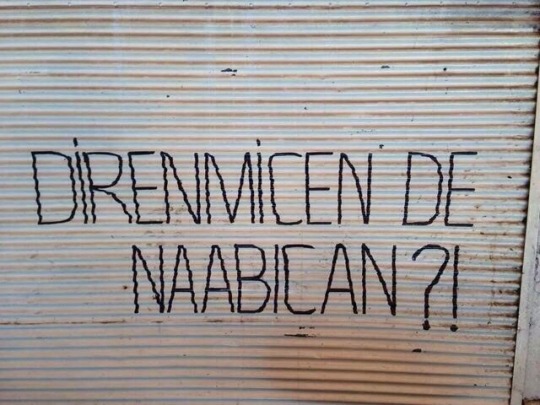 DİRENMİCEN DE
NAABICAN?!